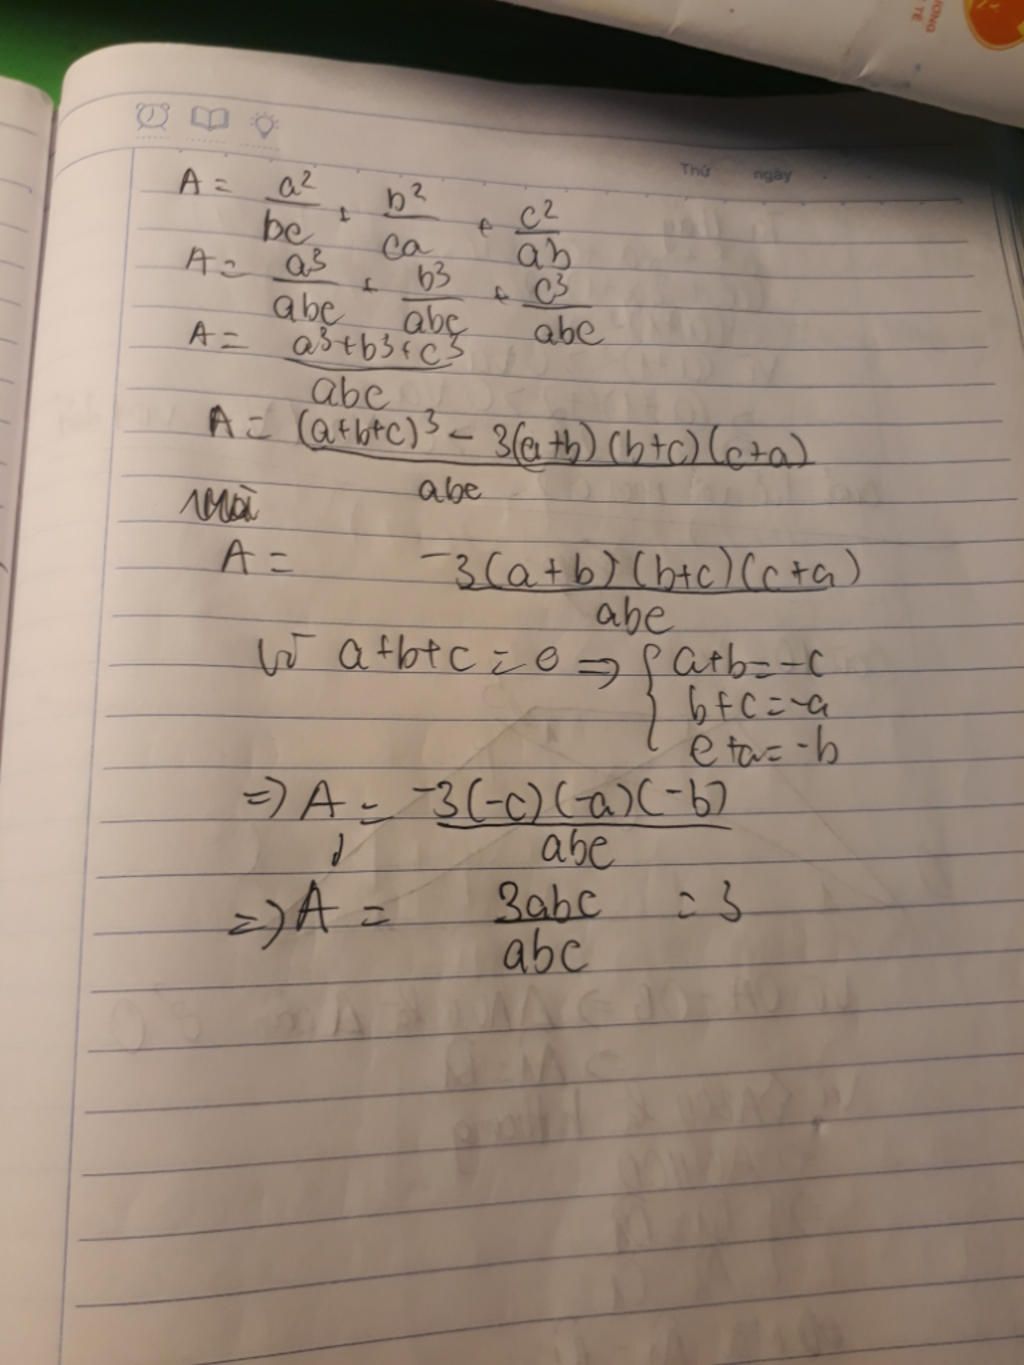 ƯƠNG
TẾ
Thứ ngày
A = a²/bc + b²/ca + c²/ab
A = a³/abc + b³/abc + c³/abc
A = a³+b³+c³/abc
A = (a+b+c)³ - 3(a+b)(b+c)(c+a)/abc
Mà
A = -3(a+b)(b+c)(c+a)/abc
Vì a+b+c = 0 => { a+b=-c
b+c=-a
c+a=-b
=> A = -3(-c)(-a)(-b)/abc
=> A = 3abc/abc = 3